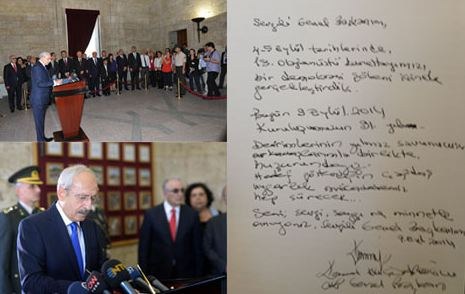 Sevgili Genel Başkanım,
4-5 Eylül tarihlerinde,
18. Olağanüstü kurultayımızı,
bir demokrasi şöleni içinde
gerçekleştirdik.
Bugün 9 Eylül 2014
Kuruluşumuzun 91. yılı.
Devrimlerinin yılmaz savunucusu
arkadaşlarımla birlikte,
huzurundayız.
Hedef gösterdiğin çağdaş
uygarlık
hep sürecek.
Seni, sevgi, saygı ve minnetle
anıyoruz. Sevgili Genel Başkanım
9.Eylül.2014
Kemal Kılıçdaroğlu
CHP Genel Başkanı
NTV